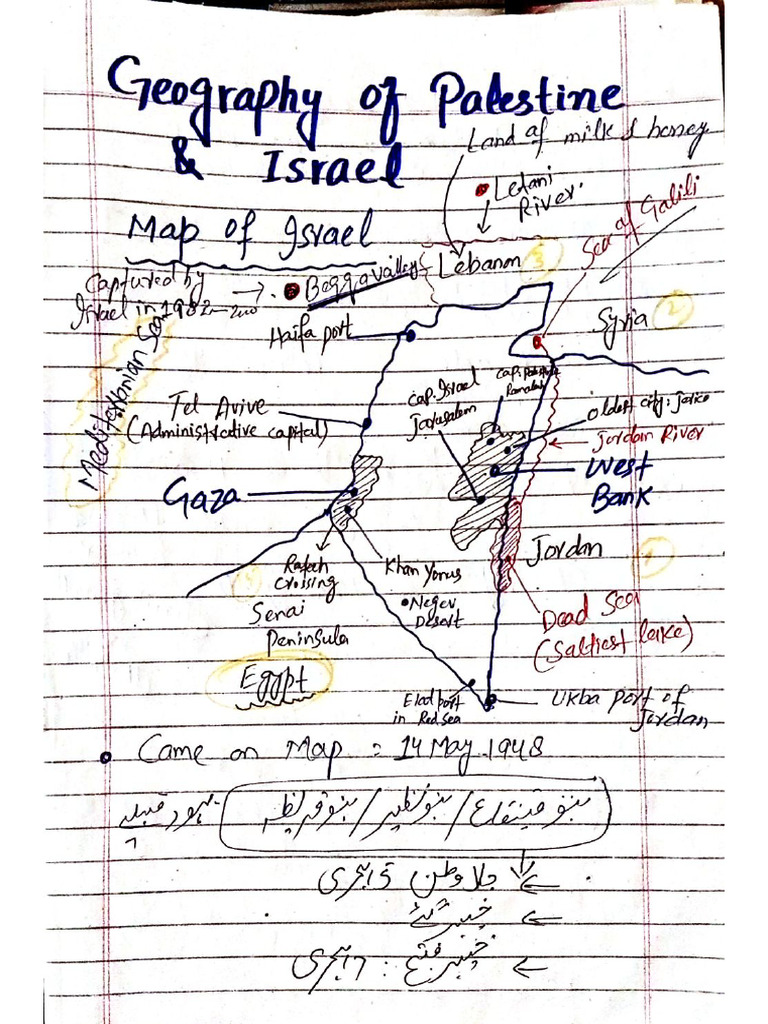 Geography of Palestine
& Israel
Land of milk & honey
Letani
River.
Sea of Galili
Map of Israel
Lebanon 3
Captured by
Israel in 1982-2000
Beqqa valley
Haifa port
Syria 2
Mediterranian Sea
Cap. Israel
Jarusalem
Cap. Palestine
Ramalah
Tel Avive
(Administrative capital)
oldest city: Jarico
Jordan River
Gaza
West
Bank
Rafah
Crossing
Khan Yonus
Jordan
Senai
Peninsula
Negev
Desert
Dead Sea
(Saltiest lake)
Egypt
Elad port
in Red Sea
Ukba port of
Jordan
Came on Map = 14 May 1948
یہود قبیلے بنو قینقاع / بنو نظیر / بنو قریظہ
جلا وطن 5 ہجری
خیبر گئے
خیبر فتح : 7 ہجری